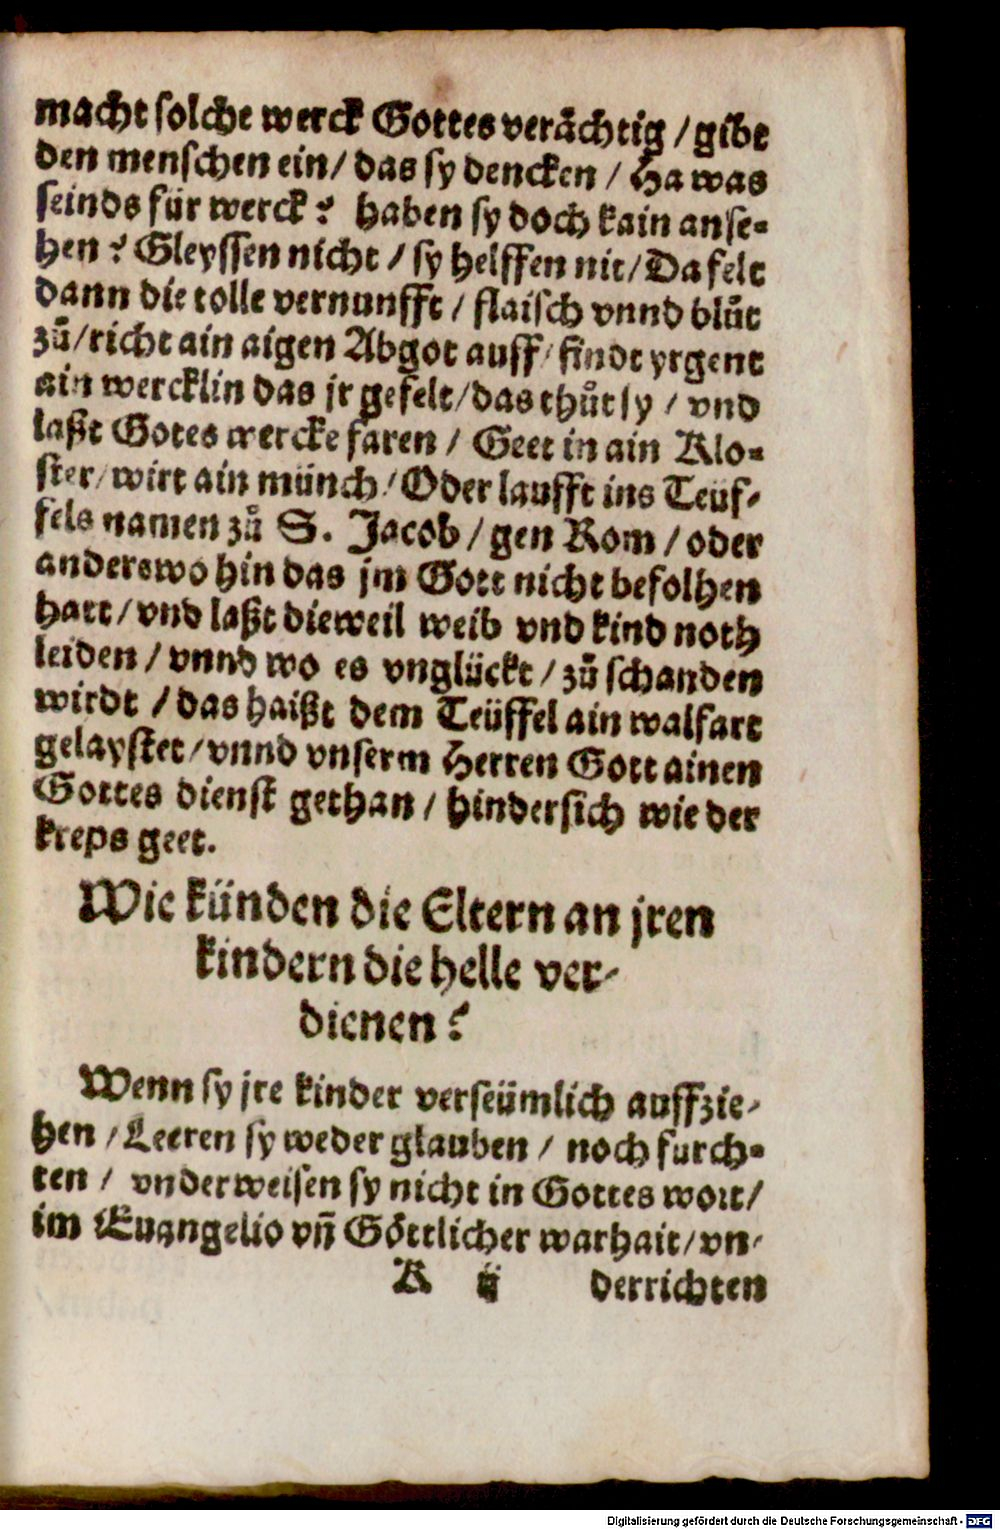 macht solche werck Gottes verächtig / gibt
den menschen ein / das sy dencken / Ha was
seinds für werck? haben sy doch kain anse-
hen? Gleyssen nicht / sy helffen nit / Da felt
dann die tolle vernunfft / flaisch vnnd blůt
zů / richt ain aigen Abgot auff / findt yrgent
ain wercklin das jr gefelt / das thůt sy / vnd
laßt Gotes wercke faren / Geet in ain Klo-
ster / wirt ain münch / Oder laufft ins Teüf-
fels namen zů S. Jacob / gen Rom / oder
anderswo hin das jm Gott nicht befolhen
hatt / vnd laßt dieweil weib vnd kind noth
leiden / vnnd wo es vnglückt / zů schanden
wirdt / das haißt dem Teüffel ain walfart
gelaystet / vnnd vnserm Herren Gott ainen
Gottes dienst gethan / hindersich wie der
kreps geet.
Wie künden die Eltern an jren
kindern die helle ver-
dienen?
Wenn sy jre kinder verseümlich auffzie-
hen / Leeren sy weder glauben / noch furch-
ten / vnderweisen sy nicht in Gottes wort /
im Euangelio vñ Göttlicher warhait / vn-
K ij derrichten
Digitalisierung gefördert durch die Deutsche Forschungsgemeinschaft - DFG